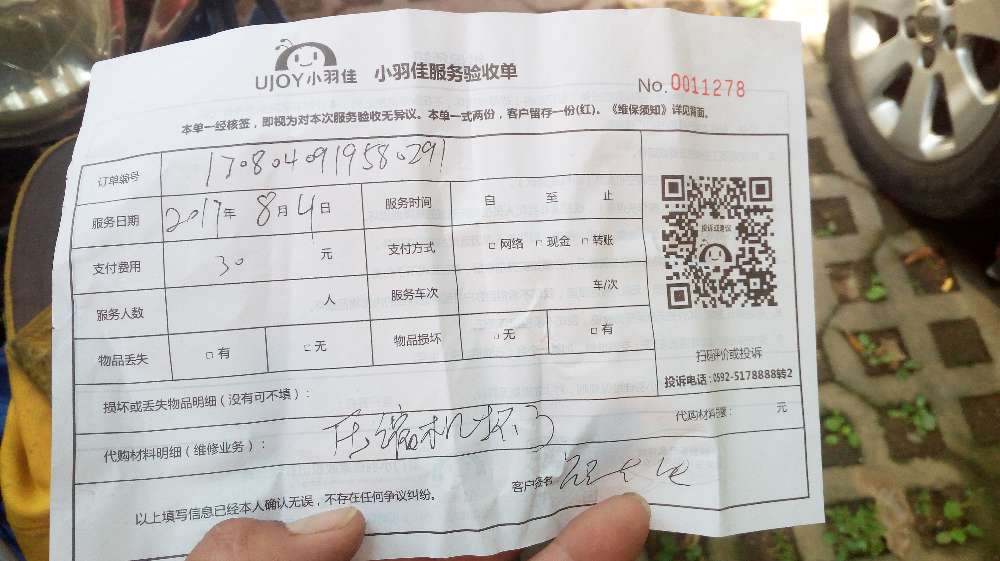 UJOY小羽佳 小羽佳服务验收单
No.0011278
本单一经核签，即视为对本次服务验收无异议。本单一式两份，客户留存一份(红)。《维保须知》详见背面。
订单编号 1708040919580291
服务日期 2017年 8月4日 服务时间 自 至 止
支付费用 30 元 支付方式 □网络 □现金 □转账
服务人数 人 服务车次 车/次
物品丢失 □有 □无 物品损坏 □无 □有
投诉或建议
扫码评价或投诉
投诉电话:0592-5178888转2
损坏或丢失物品明细（没有可不填）：
代购材料明细（维修业务）： 压缩机坏了 代购材料费： 元
以上填写信息已经本人确认无误，不存在任何争议纠纷。 客户签名